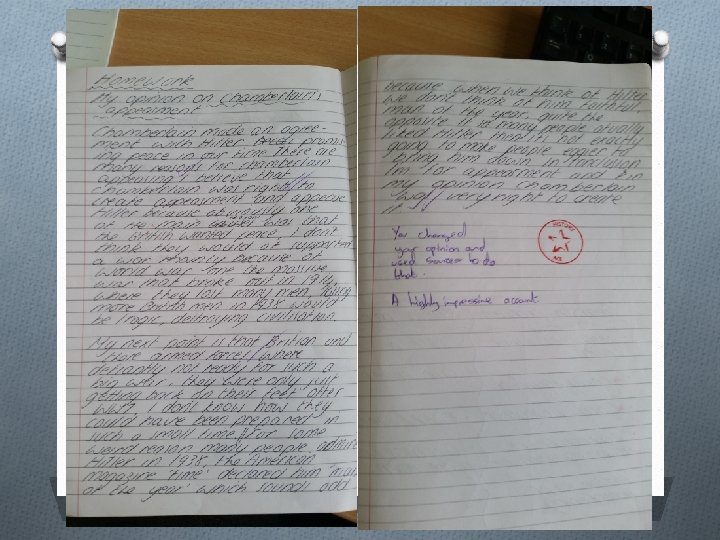 Homework
My opinion on Chamberlain's
appeasment
Chamberlain made an agre-
ment with Hitler promis-
ing peace in our time. There are
many reasons for chamberlain
appeasing I believe that
chamberlain was right to
create appeasment and appease
Hitler because obviously one
of the major was that
the British wanted peace I don't
think they would of supported
a war mainly because of
World War One the massive
war that broke out in 1914,
where they lost many men losing
more British men in 1938 would
be tragic, destroying civilisation.
My next point is that Britian and
armed forces where
definantly not ready for such a
big war. They were only just
getting back on their feet after
WW1, I don't know how they
could have been prepared in
such a small time. For some
weird reason many people
Hitler in 1938 the American
magazine 'time' declared him 'man
of the year' which sounds odd
because when we think of Hitler
we don't think of him faithful,
man of the year, quite the
opposite. If so many people
liked Hitler that's not exactly
going to make people eager to
bring him down. In conclusion
I'm for appeasment and in
my opinion Chamberlain
was very right to create
it.
You changed
your opinion and
used sources to do
that.
A highly impressive account.
HISTORY